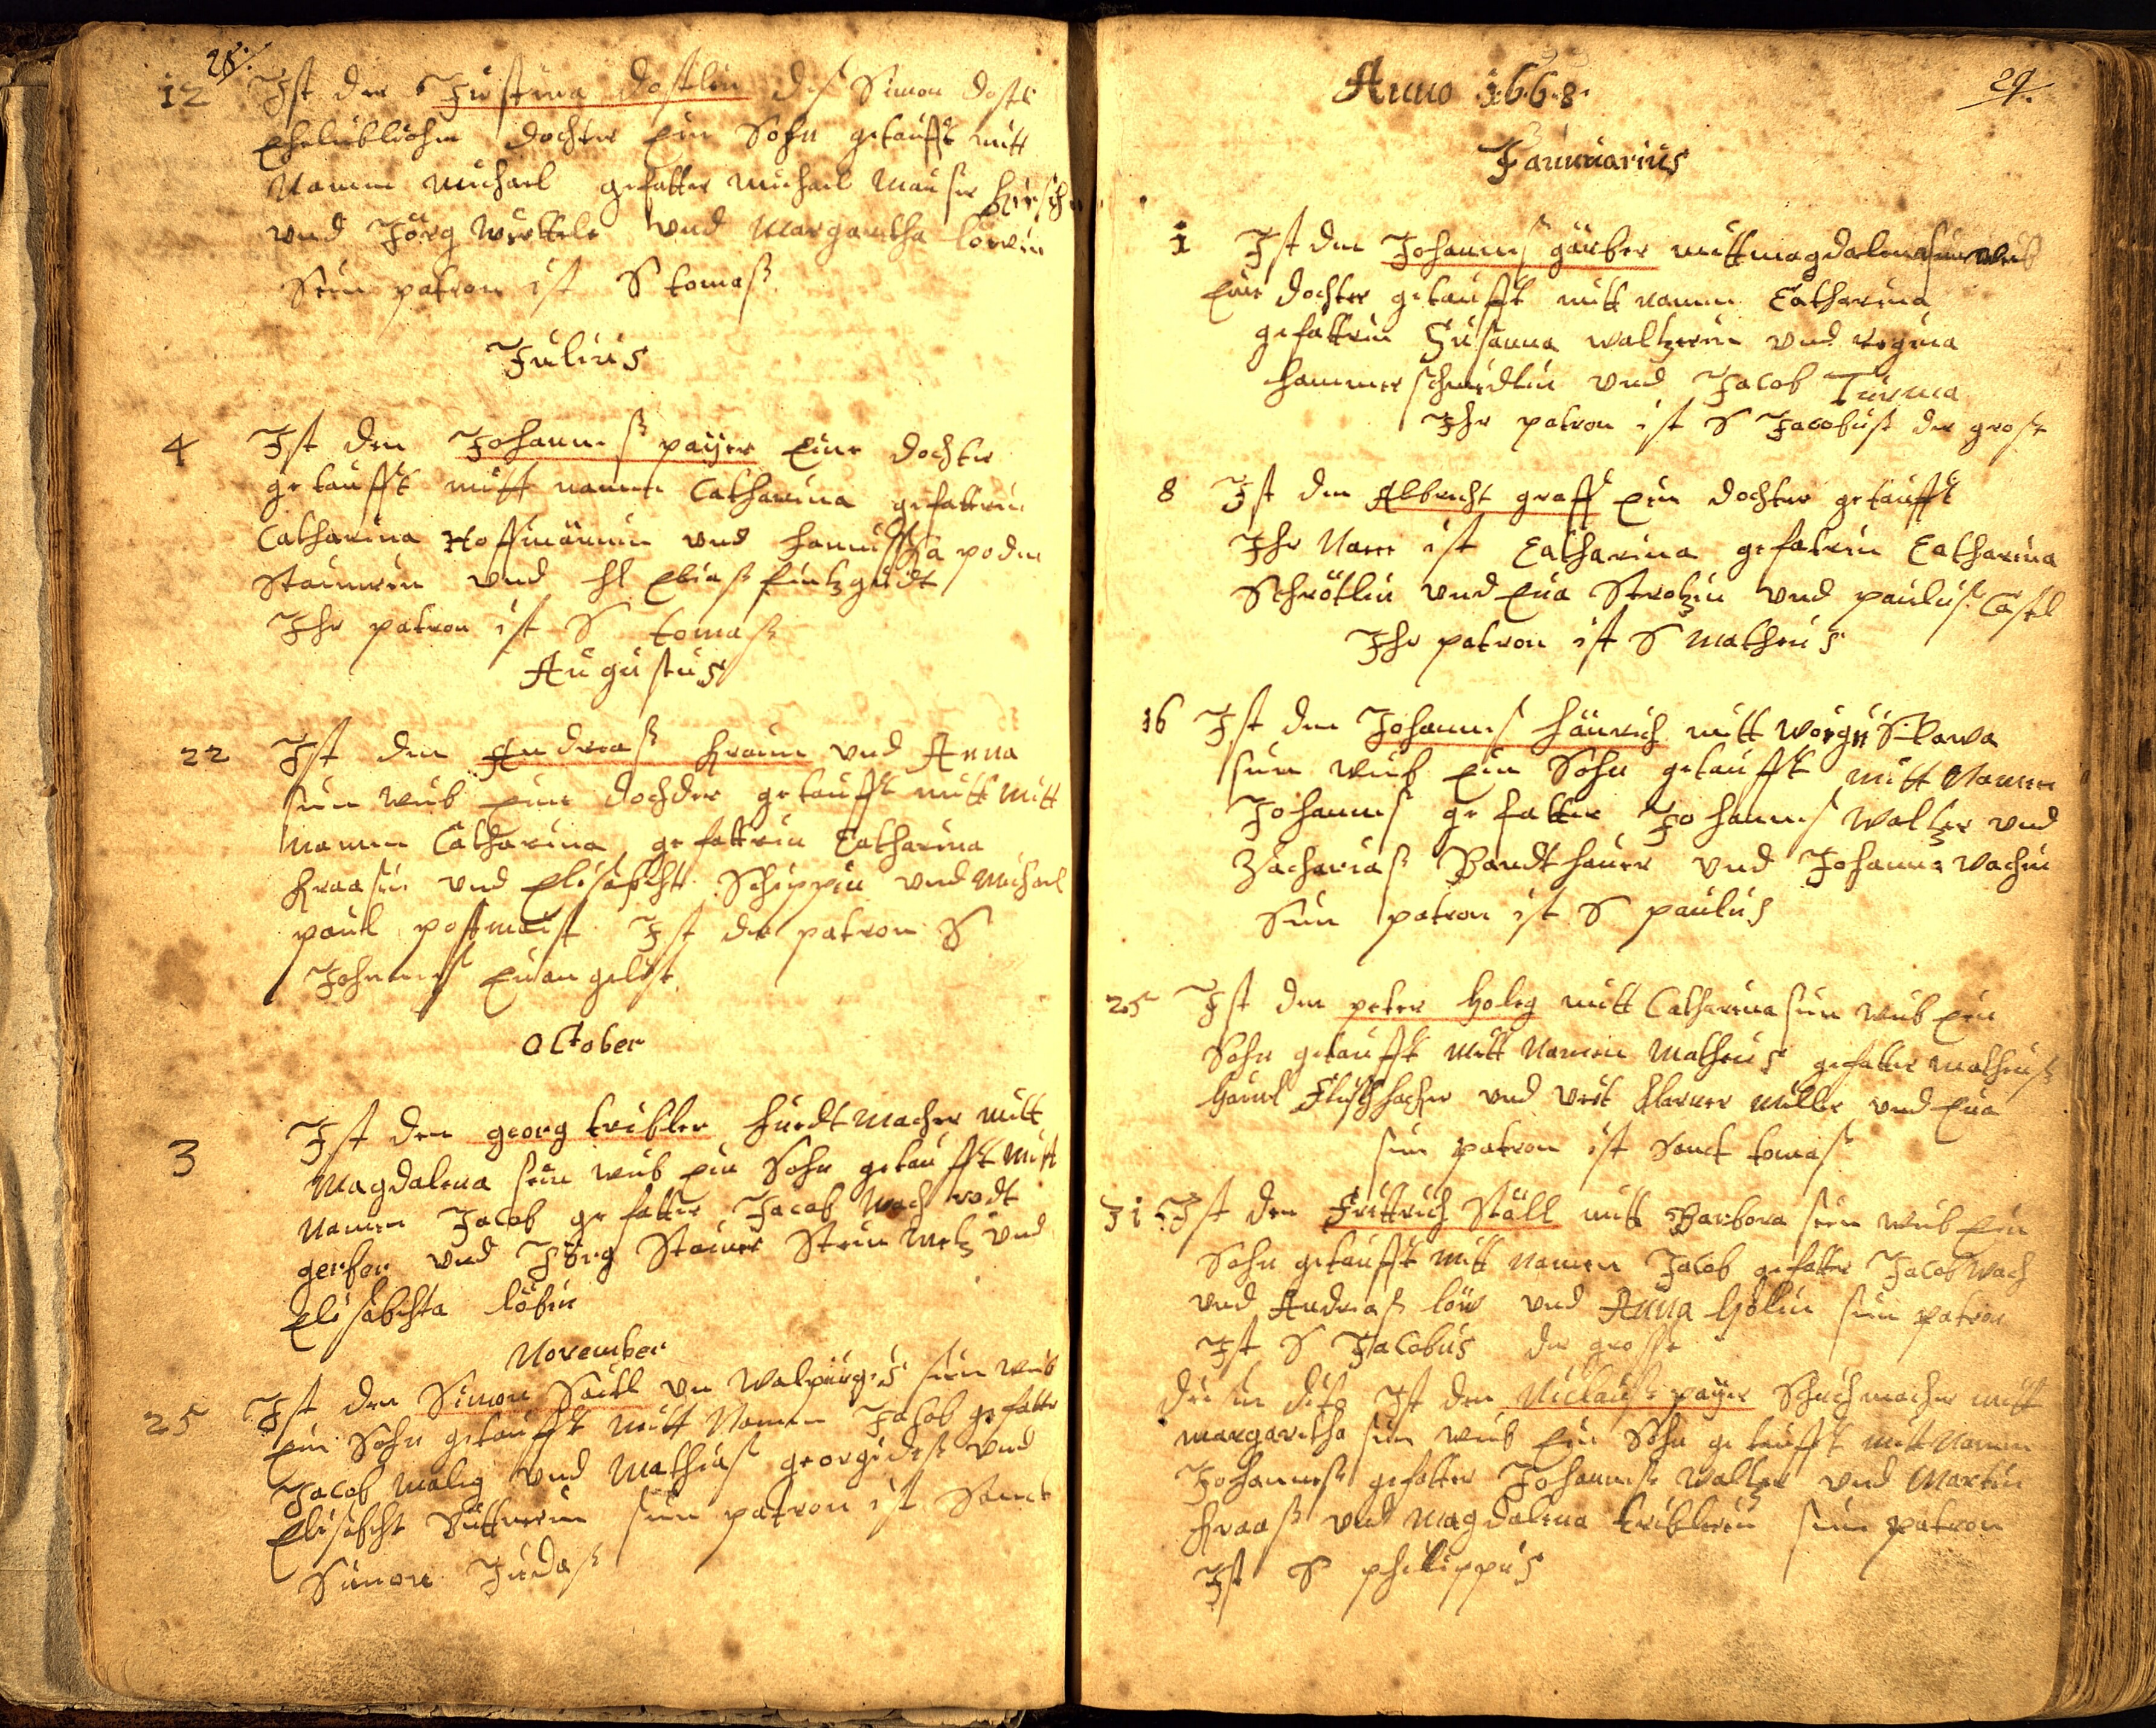 28.
12 Ist der Justina dostlin deß Simon dostl
Ehelüblichen dochter Ein Sohn getaufft mitt
Namen Michael gefatter Michael Mauser
und Jörg und Margaretha löwin
Sein patron ist S tomaß
Julius
4 Ist den Johanneß paÿer Eine dochter
getaufft mitt namen Catharina gefattrin
Catharina Hoffmännin und
und Hl Eliaß
Ihr patron ist S tomaß
Augustus
22 Ist den Andreaß Kraum und Anna
sein weib Eine dochder getaufft mitt mitt
namen Catharina gefattrin Catharina
Kraasin und Elisabeht Schippin und Michael
paul postmeist Ist der patron S
Johannes Euangelist
October
3 Ist den georg tribler hurdtmacher mitt
Magdalena sein weib ein Sohn getaufft mitt
Namen Jacob gefatter Jacob Wach rodt
gerber und Jörg Stainer Stein Metz und
Elisabehta löbin
November
25 Ist den Simon Saitl vn Walpurgis sein weib
ein Sohn getaufft mitt Namen Jacob gefatter
Jacob Malig und Mathias georgideß und
Elisabeht Süttnerin sein patron ist Sanct
Simon Judaß
29.
Anno 1668
Jannuarius
1 Ist den Johannes gärber mitt magdalena sein weib
Eine dochter getaufft mitt namen Catharina
gefattrin Susanna waltzerin und regina
hammerschmidtin und Jacob Turma
Ihr patron ist S Jacobuß der große
8 Ist den Albrecht graff Ein dochter getaufft
Ihr Name ist Catharina gefatrin Catharina
Schrötlin und Eua Strotzin und pauluß Castl
Ihr patron ist S Matheus
16 Ist den Johannes häurich mitt
sein weib Ein Sohn getaufft mitt Namen
Johannes gefatter Johannes Waltzer und
Zachariaß Bandthauer und Johanna wachin
Sein patron ist S paulus
25 Ist den peter holig mitt Catharina sein weib Ein
Sohn getaufft mitt Namen Matheus gefatter Matheuß
und Veit Müller und Eua
sein patron ist Sanct tomaß
31 Ist den Frittrich Ställ mitt Barbora sein weib Ein
Sohn getaufft mitt namen Jacob gefatter Jacob Wach
und Andreaß löw und Anna hölin sein patron
Ist S Jacobus der grosse
Ist den Niclauß paÿer Schuchmacher mitt
margaretha sein weib Ein Sohn getaufft mitt Namen
Johanneß gefatter Johanneß Waltzer und Martin
Kraaß und Magdalena triblerin sein patron
Ist S philippus